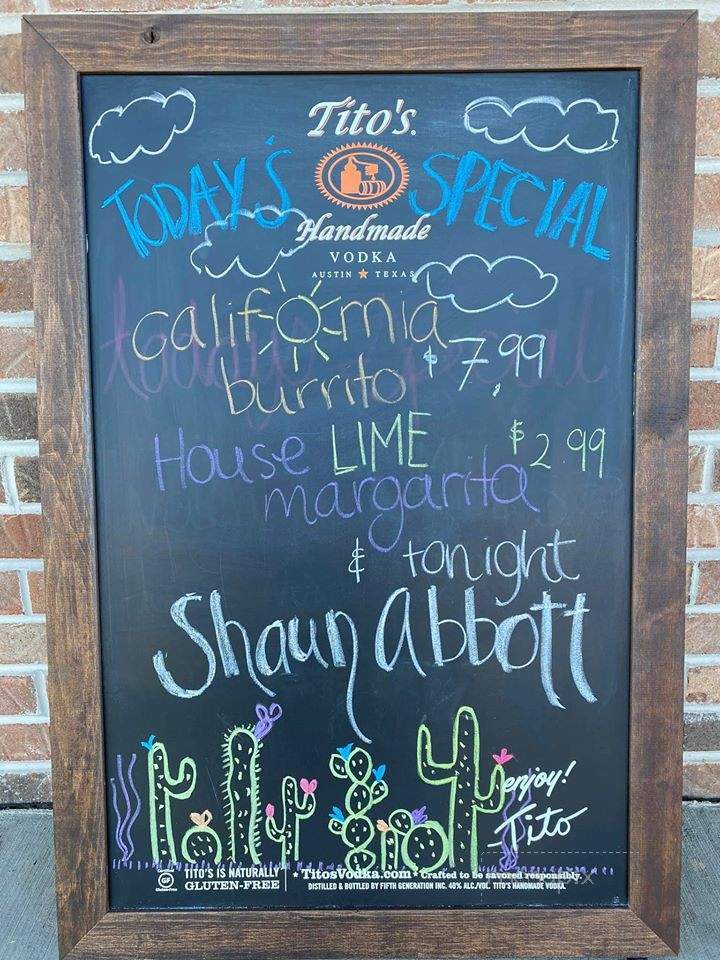 Tito's.
TODAY'S SPECIAL
Handmade
VODKA
AUSTIN ★ TEXAS
california
today's special
burrito $7.99
House LIME $2.99
margarita
& tonight
Shaun Abbott
enjoy!
Tito
CERTIFIED
GF
Gluten-Free
TITO'S IS NATURALLY
GLUTEN-FREE
★ TitosVodka.com ★ Crafted to be savored responsibly.
DISTILLED & BOTTLED BY FIFTH GENERATION INC. 40% ALC./VOL. TITO'S HANDMADE VODKA.